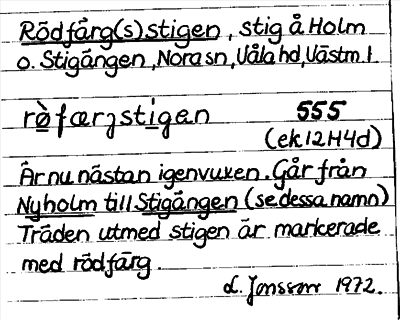 Rödfärg(s)stigen, stig å Holm
o. Stigängen, Nora sn, Våla hd, Västm. l.
rö̀færʒstigen 555
(ek 12H4d)
Är nu nästan igenvuxen. Går från
Nyholm till Stigängen (se dessa namn)
Träden utmed stigen är markerade
med rödfärg.
L. Jonsson 1972.